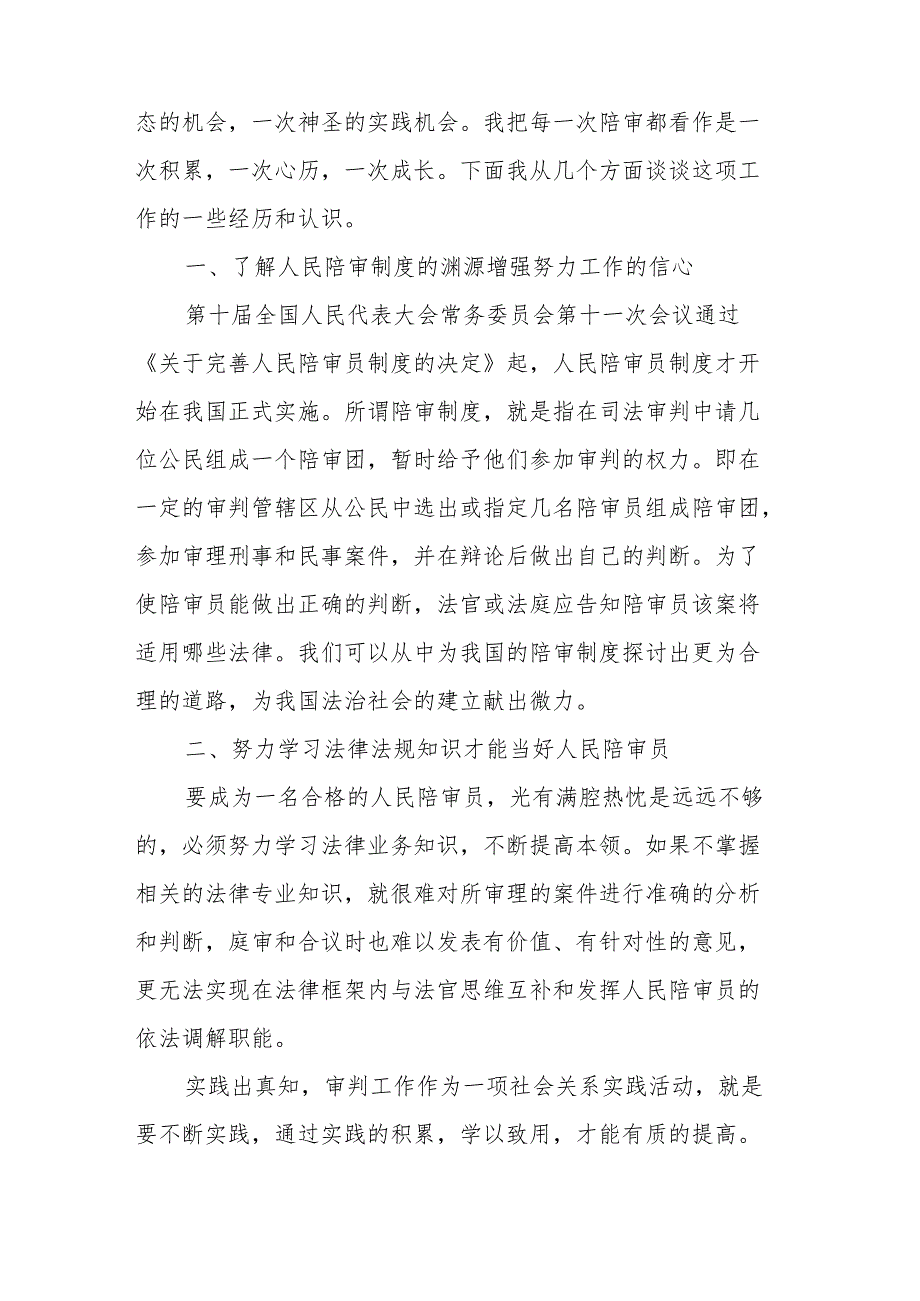 态的机会，一次神圣的实践机会。我把每一次陪审都看作是一
次积累，一次心历，一次成长。下面我从几个方面谈谈这项工
作的一些经历和认识。
一、了解人民陪审制度的渊源增强努力工作的信心
第十届全国人民代表大会常务委员会第十一次会议通过
《关于完善人民陪审员制度的决定》起，人民陪审员制度才开
始在我国正式实施。所谓陪审制度，就是指在司法审判中请几
位公民组成一个陪审团，暂时给予他们参加审判的权力。即在
一定的审判管辖区从公民中选出或指定几名陪审员组成陪审团，
参加审理刑事和民事案件，并在辩论后做出自己的判断。为了
使陪审员能做出正确的判断，法官或法庭应告知陪审员该案将
适用哪些法律。我们可以从中为我国的陪审制度探讨出更为合
理的道路，为我国法治社会的建立献出微力。
二、努力学习法律法规知识才能当好人民陪审员
要成为一名合格的人民陪审员，光有满腔热忱是远远不够
的，必须努力学习法律业务知识，不断提高本领。如果不掌握
相关的法律专业知识，就很难对所审理的案件进行准确的分析
和判断，庭审和合议时也难以发表有价值、有针对性的意见，
更无法实现在法律框架内与法官思维互补和发挥人民陪审员的
依法调解职能。
实践出真知，审判工作作为一项社会关系实践活动，就是
要不断实践，通过实践的积累，学以致用，才能有质的提高。